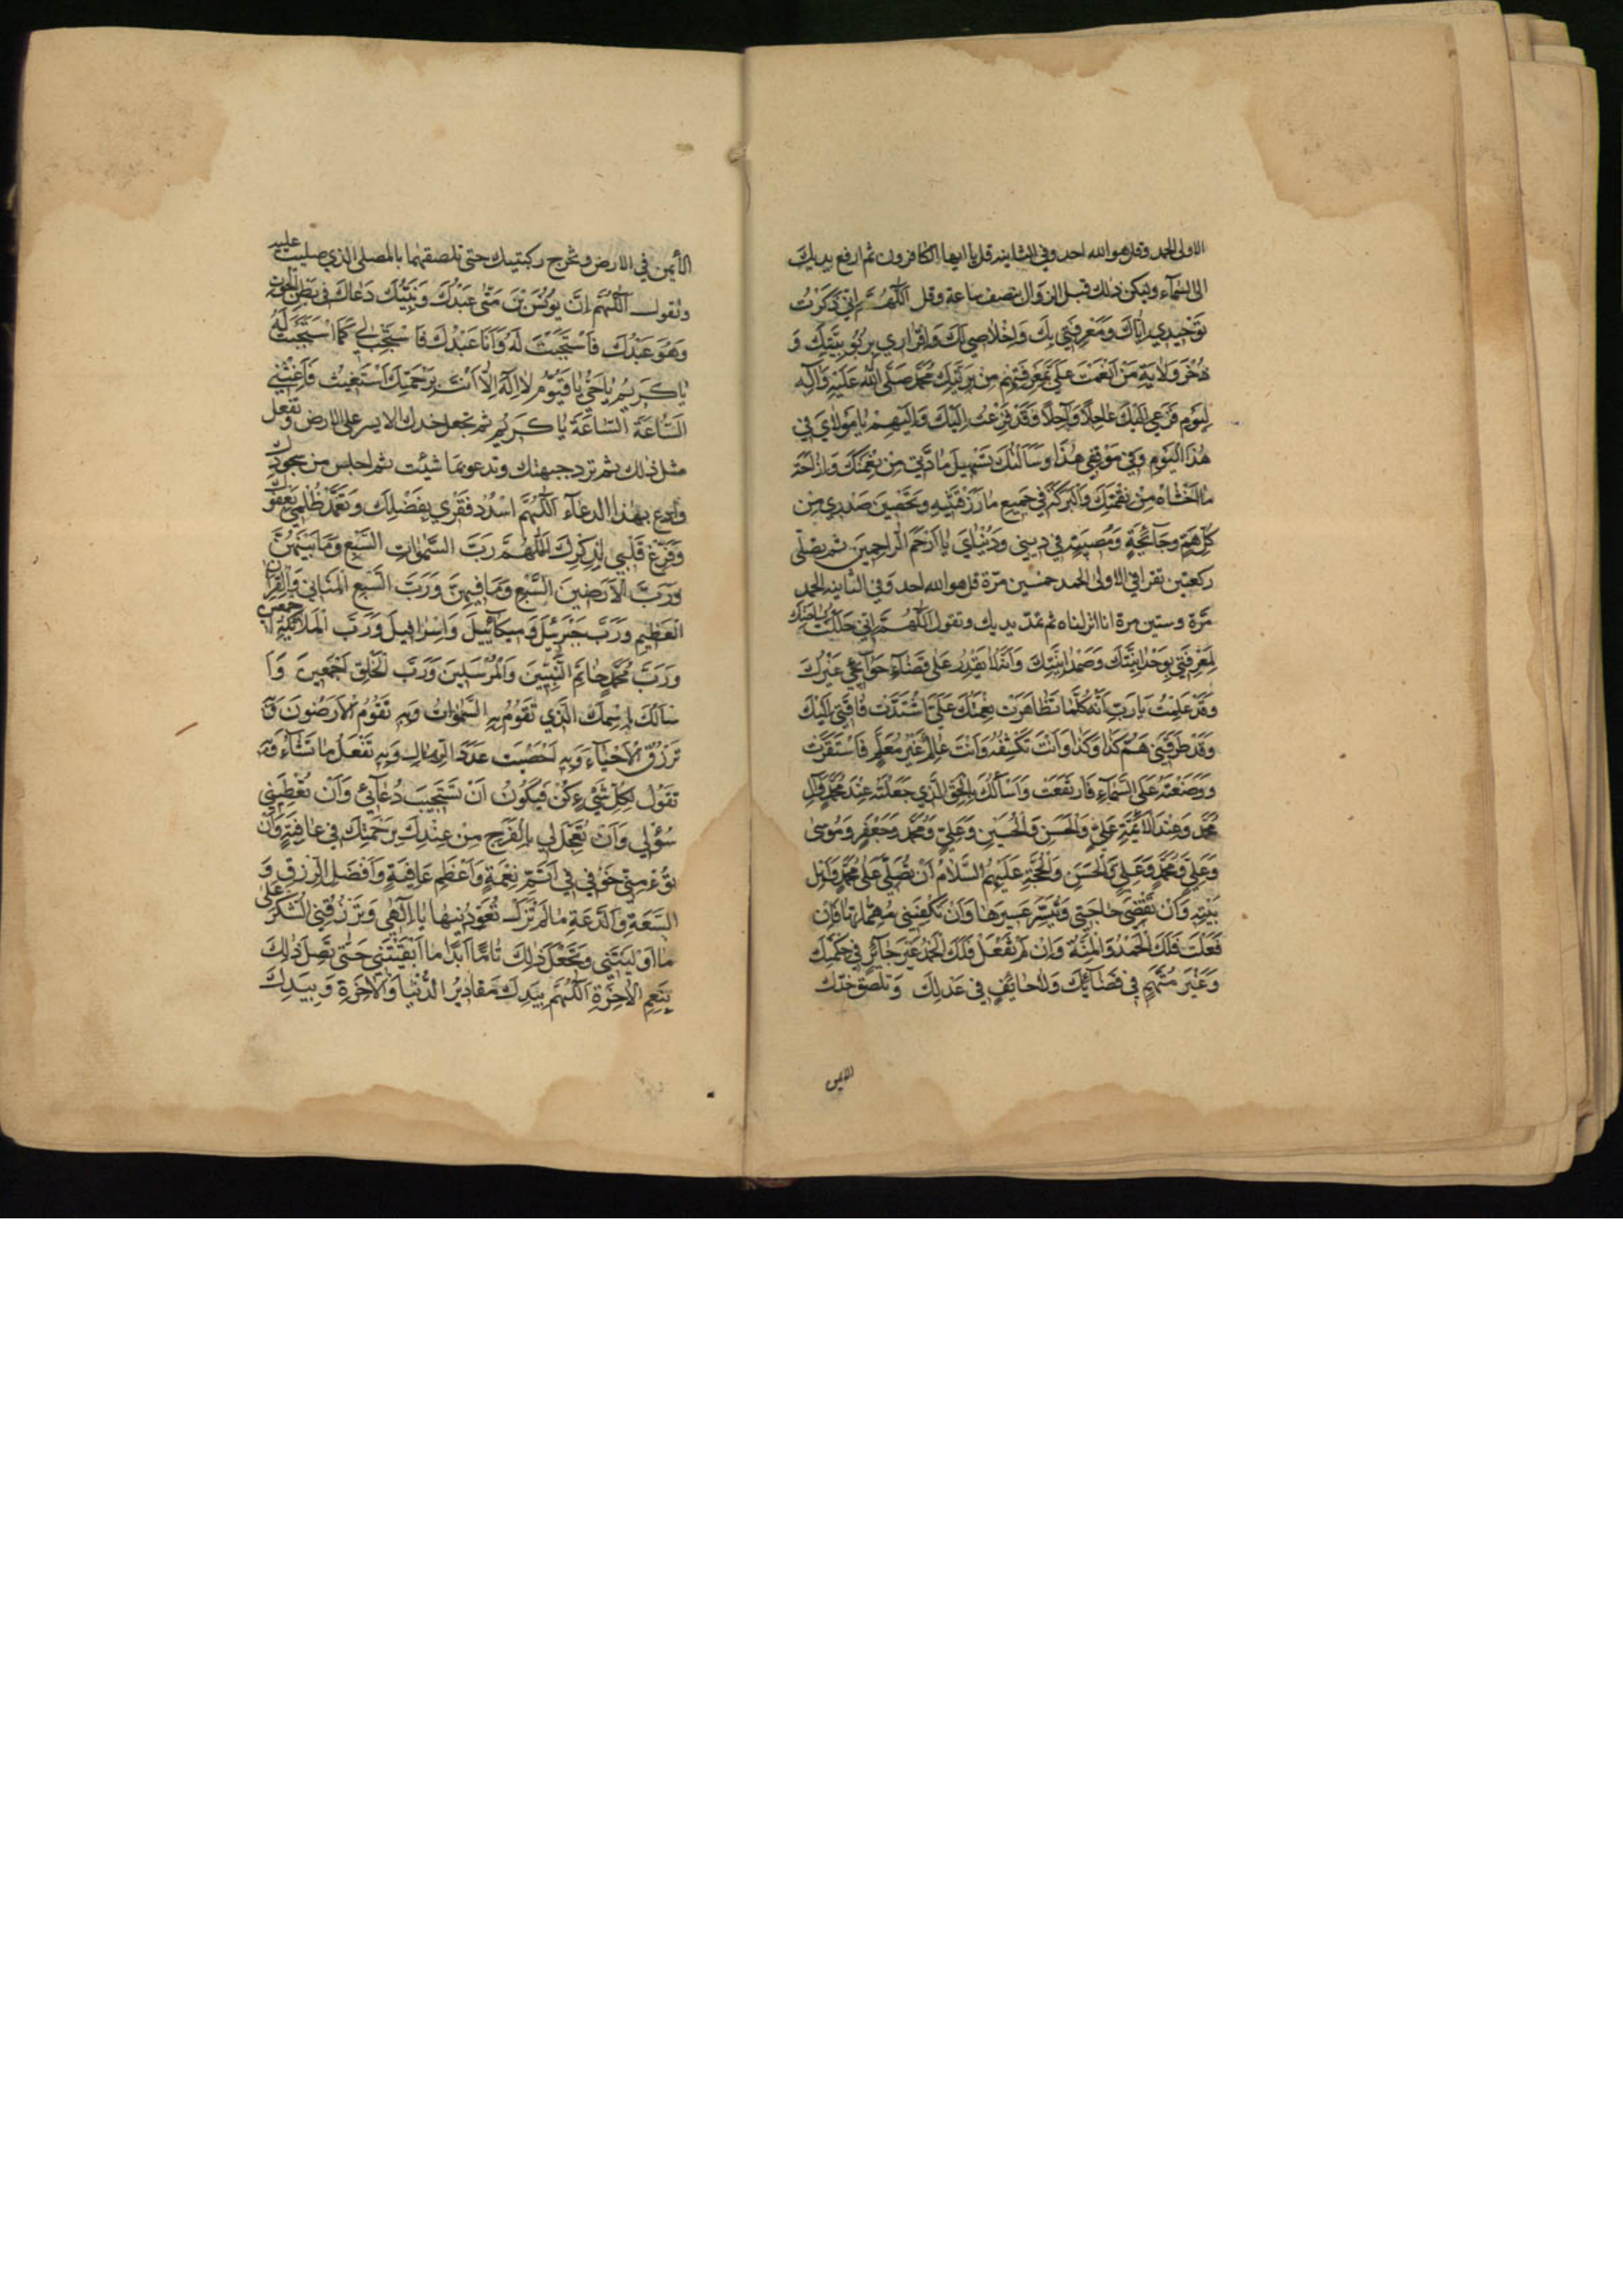 الاولى الحمد وقل هو الله احد وفي الثانية قل يا ايها الكافرون ثم ارفع يديك
الى السمآء وليكن ذلك قبل الزوال بنصف ساعة وقل اَللّٰهُمَّ اِنّي ذَكَرْتُ
تَوْحيدي اِيّاكَ وَمَعْرِفَتي بِكَ وَاِخْلاصي لَكَ وَاِقْراري بِرُبُوبِيَّتِكَ وَ
ذَخَرْتُ وَلايَةَ مَنْ اَنْعَمْتَ عَلَيَّ بِمَعْرِفَتِهِمْ مِنْ بَرِيَّتِكَ مُحَمَّدٍ صَلَّى اللّٰهُ عَلَيْهِ وَآلِه
لِيَوْمِ فَزَعي اِلَيْكَ عاجِلاً وَآجِلاً وَقَدْ فَزِعْتُ اِلَيْكَ وَاِلَيْهِمْ يا مَوْلايَ في
هٰذَا الْيَوْمِ وَفي مَوْقِفي هٰذا وَسَأَلْتُكَ مادَّتي مِنْ نِعْمَتِكَ وَاِزاحَةَ
ما اَخْشاهُ مِنْ نِقْمَتِكَ وَالْبَرَكَةَ في جَميعِ ما رَزَقْتَنيهِ وَتَحْصينَ صَدْري مِنْ
كُلِّ هَمٍّ وَجآئِحَةٍ وَمُصيبَةٍ في ديني وَدُنْيايَ يا اَرْحَمَ الرّاحِمينَ ثم يصلي
ركعتين تقرا في الاولى الحمد خمسين مرّة قل هو الله احد وفي الثانية الحمد
مرّة وستين مرة انا انزلناه ثم تمدّ يديك وتقول اَللّٰهُمَّ اِنّي حَلَلْتُ بِساحَتِكَ
لِمَعْرِفَتي بِوَحْدانِيَّتِكَ وَصَمَدانِيَّتِكَ وَاَنَّهُ لا يَقْدِرُ عَلى قَضآءِ حَوآئِجي غَيْرُكَ
وَقَدْ عَلِمْتُ يا رَبِّ اَنَّهُ كُلَّما تَظاهَرَتْ نِعْمَتُكَ عَلَيَّ اشْتَدَّتْ فاقَتي اِلَيْكَ
وَقَدْ طَرَقَني هَمُّ كَذا وَكَذا وَاَنْتَ تَكْشِفُهُ وَاَنْتَ عالِمٌ غَيْرُ مُعَلَّمٍ فَاسْتَقَرَّتْ
وَوَضَعْتَهُ عَلَى السَّمآءِ فَارْتَفَعَتْ وَاَسْأَلُكَ بِالْحَقِّ الَّذي جَعَلْتَهُ عِنْدَ مُحَمَّدٍ وَآلِ
مُحَمَّدٍ وَعِنْدَ الْاَئِمَّةِ عَلِيٍّ وَالْحَسَنِ وَالْحُسَيْنِ وَعَلِيٍّ وَمُحَمَّدٍ وَجَعْفَرٍ وَمُوسى
وَعَلِيٍّ وَمُحَمَّدٍ وَعَلِيٍّ وَالْحَسَنِ وَالْحُجَّةِ عَلَيْهِمُ السَّلامُ اَنْ تُصَلِّيَ عَلى مُحَمَّدٍ وَاَهْلِ
بَيْتِهِ وَاَنْ تَقْضِيَ حاجَتي وَتُيَسِّرَ عَسيرَها وَاَنْ تَكْفِيَني مُهِمّاتِها فَاِنْ
فَعَلْتَ فَلَكَ الْحَمْدُ وَالْمِنَّةُ وَاِنْ لَمْ تَفْعَلْ فَلَكَ الْحَمْدُ غَيْرَ جآئِرٍ في حُكْمِكَ
وَغَيْرَ مُتَّهَمٍ في قَضآئِكَ وَلا حائِفٍ في عَدْلِكَ وتلصق خدّك
الايمن
الأيمن في الارض وتخرج ركبتيك حتى تلصقهما بالمصلى الذي صليت عليه
وتقول اَللّٰهُمَّ اِنَّ يُونُسَ بْنَ مَتّى عَبْدُكَ وَنَبِيُّكَ دَعاكَ في بَطْنِ الْحُوتِ
وَهُوَ عَبْدُكَ فَاسْتَجَبْتَ لَهُ وَاَنَا عَبْدُكَ فَاسْتَجِبْ لي كَمَا اسْتَجَبْتَ لَهُ
يا كَريمُ يا حَيُّ يا قَيُّومُ لا اِلٰهَ اِلّا اَنْتَ بِرَحْمَتِكَ اَسْتَغيثُ فَاَغِثْني
السّاعَةَ السّاعَةَ يا كَريمُ ثم تجعل خدك الايسر على الارض وتفعل
مثل ذلك ثم ترد جبهتك وتدعو بما شئت ثم اجلس من سجودك
وادع بهذا الدعآء اَللّٰهُمَّ اسْدُدْ فَقْري بِفَضْلِكَ وَتَغَمَّدْ ظُلْمي بِعَفْوِكَ
وَفَرِّغْ قَلْبي لِذِكْرِكَ اَللّٰهُمَّ رَبَّ السَّمٰواتِ السَّبْعِ وَما بَيْنَهُنَّ
وَرَبَّ الْاَرَضينَ السَّبْعِ وَما فيهِنَّ وَرَبَّ السَّبْعِ الْمَثاني وَالْقُرْآنِ
الْعَظيمِ وَرَبَّ جَبْرَئيلَ وَميكآئيلَ وَاِسْرافيلَ وَرَبَّ الْمَلآئِكَةِ
وَرَبَّ مُحَمَّدٍ خاتَمِ النَّبِيّينَ وَالْمُرْسَلينَ وَرَبَّ الْخَلْقِ اَجْمَعينَ وَاَ
سْأَلُكَ بِاسْمِكَ الَّذي تَقُومُ بِهِ السَّمٰواتُ وَبِهِ تَقُومُ الْاَرَضُونَ وَبِهِ
تَرْزُقُ الْاَحْيآءَ وَبِهِ اَحْصَيْتَ عَدَدَ الرِّمالِ وَبِهِ تَفْعَلُ ما تَشآءُ وَبِهِ
تَقُولُ لِكُلِّ شَيْءٍ كُنْ فَيَكُونُ اَنْ تَسْتَجيبَ دُعآئي وَاَنْ تُعْطِيَني
سُؤْلي وَاَنْ تُعَجِّلَ لي بِالْفَرَجِ مِنْ عِنْدِكَ بِرَحْمَتِكَ في عافِيَةٍ وَاَنْ
تُؤْمِنَ خَوْفي في اَتَمِّ نِعْمَةٍ وَاَعْظَمِ عافِيَةٍ وَاَفْضَلِ الرِّزْقِ وَ
السَّعَةِ وَالدَّعَةِ ما لَمْ تَزَلْ تُعَوِّدُنيها يا اِلٰهي وَتَرْزُقَنِي الشُّكْرَ عَلى
ما اَوْلَيْتَني وَتَجْعَلَ ذٰلِكَ تامًّا اَبَدًا ما اَبْقَيْتَني حَتّى تَصِلَ ذٰلِكَ
بِنَعيمِ الْاٰخِرَةِ اَللّٰهُمَّ بِيَدِكَ مَقاديرُ الدُّنْيا وَالْاٰخِرَةِ وَبِيَدِكَ